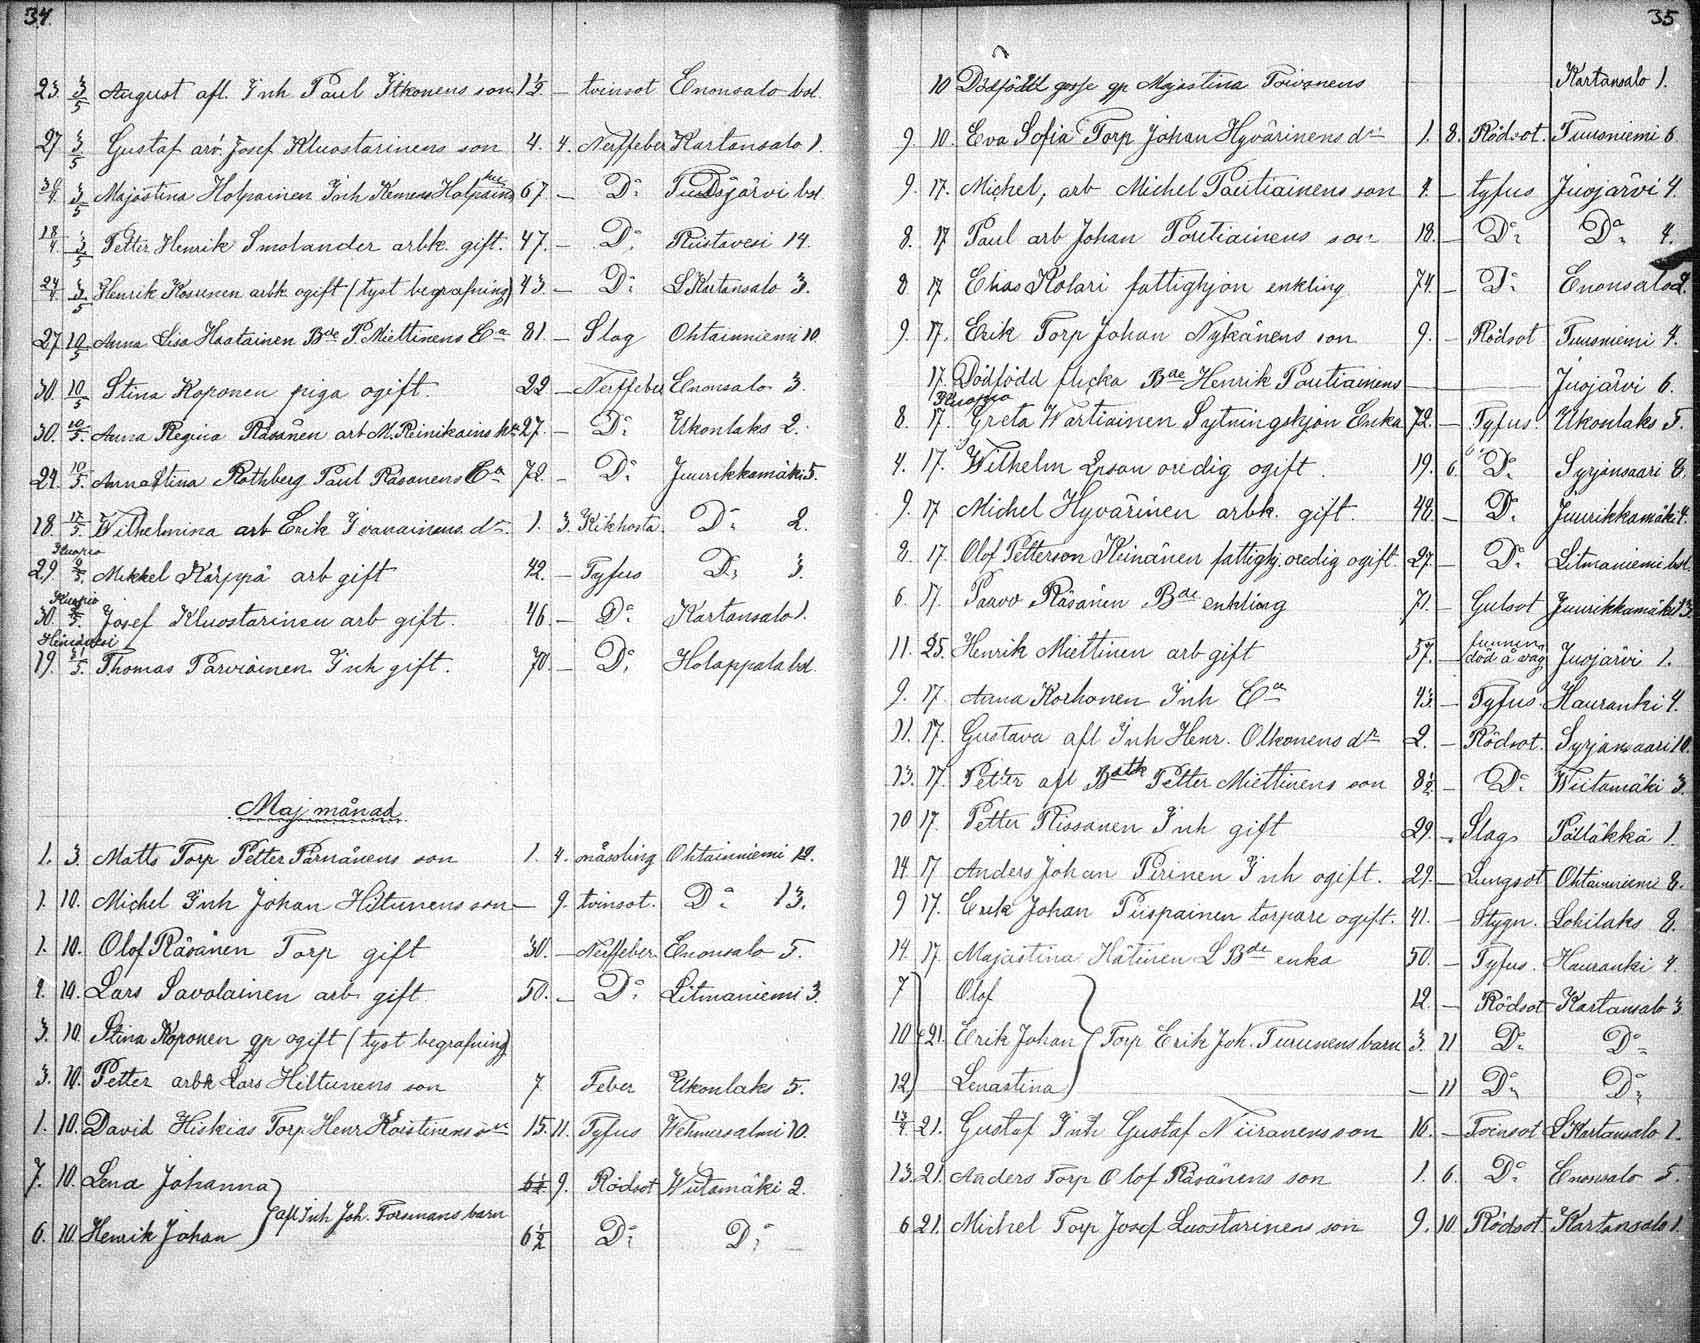 34.
23. 3/5 August afl. Inh Paul Itkonens son 1 1/2 — tvinsot Enonsalo bol.
27 3/5 Gustaf arb. Josef Kluostarinens son 4. 4. Nerffeber Kartansalo 1.
30/4. 3/5 Majastina Holpainen Inh Klemens Holpain hu 67 — Do Tuusjärvi bol.
18/4. 3/5 Petter Henrik Smolander arbk. gift. 47. — Do Riistavesi 14.
24/4 3/5 Henrik Kosunen arbk ogift (tyst begrafning) 43 — Do L Kartansalo 3.
27. 10/5 Anna Lisa Haatainen Bde P. Miettinens Ea 81. — Slag Ohtainniemi 10.
30. 10/5 Stina Koponen piga ogift. 22 — Nerffeber Enonsalo 3.
30. 10/5. Anna Regina Räsänen arb M. Reinikains 27. — Do Ukonlaks 2.
29. 10/5. Anna Stina Rothberg Paul Räsänens Ea 72. — Do Juurikkamäki 5.
18. 17/5. Wilhelmina arb Erik Ivanainens dr 1. 3. Kikhosta. Do 2.
Kuopio
29. 2/5. Mikkel Kärppä arb gift 42. — Tyfus Do 3.
Kuopio
30. 2/5. Josef Kluostarinen arb gift. 46. — Do Kartansalo 1.
Heinävesi
19. 31/5. Thomas Parviainen Inh gift. 70. — Do Holappala bol
Maj månad
1. 3. Matts Torp Petter Pärnänens son 1. 4. mässling Ohtainniemi 12.
1. 10. Michel Inh Johan Hiltunens son — 9. tvinsot. Do 13.
1. 10. Olof Räsänen Torp gift 30. — Nerffeber Enonsalo 5.
1. 10. Lars Savolainen arb gift 50. — Do Litmaniemi 3.
3. 10. Stina Koponen qp ogift (tyst begrafning)
3. 10. Petter arbk Lars Hiltunens son 7 Feber Ukonlaks 5.
1. 10. David Hiskias Torp Henr Koistinens son 15. 11. Tyfus Wehmersalmi 10.
7. 10. Lena Johanna } afl Inh Joh. Forsmans barn 9. Rödsot Wiitamäki 2.
6. 10. Henrik Johan 6 1/2 Do Do —
35
10 Dödfödd gosse qp Majastina Toivanens Kartansalo 1.
9. 10. Eva Sofia Torp Johan Hyvärinens dr 1. 8. Rödsot Tuusniemi 6.
9. 17. Michel, arb Michel Poutiainens son 4. — tyfus Juojärvi 4.
8. 17 Paul arb Johan Poutiainens son 18. — Do Do 4.
8 17 Elias Kolari fattighjon enkling 74. — Do Enonsalo 2.
9. 17. Erik Torp Johan Nykänens son 9. — Rödsot Tuusniemi 4.
17. Dödfödd flicka Bde Henrik Poutiainens — Juojärvi 6.
Kuopio
8. 17. Greta Wartiainen Sytningshjon Enka 72. — Tyfus. Ukonlaks 5.
4. 17. Wilhelm Epson oredig ogift. 19. 6. Do Syrjänsaari 8.
9. 17 Michel Hyvärinen arbk. gift. 48. — Do Juurikkamäki 4.
8 17. Olof Petterson Keinänen fattighj. oredig ogift. 27. — Do Litmaniemi bol.
6. 17. Paavo Räsänen Bde enkling 71. — Gulsot Juurikkamäki 13.
11. 25. Henrik Miettinen arb gift 57. — funnen död å väg Juojärvi 1.
9. 17. Anna Korhonen Inh Ea 43. — Tyfus. Hauranki 4.
11. 17. Gustava afl Inh Henr. Olkonens dr 2. — Rödsot. Syrjänsaari 10.
13. 17. Petter afl Petter Miettinens son 8 1/2 — Do Wiitamäki 3.
10 17. Petter Rissanen Inh gift 29. — Slag Paltäkkä 1.
14. 17 Anders Johan Pirinen Inh ogift. 29. — Lungsot Ohtainniemi 8.
9 17. Erik Johan Piispainen torpare ogift. 41. — Stygn. Lohilaks 8.
14. 17. Majastina Hätinen L Bde enka 50. — Tyfus. Hauranki 4.
7 Olof 12. — Rödsot Kartansalo 3.
10 21. Erik Johan } Torp Erik Joh. Turunens barn 3. 11 Do Do
12. Lenastina — 11 Do Do
21. Gustaf Inh Gustaf Niiranens son 16. — Tvinsot L Kartansalo 1.
13. 21. Anders Torp Olof Räsänens son 1. 6. Do Enonsalo 5.
6 21. Michel Torp Josef Luostarinens son 9. 10. Rödsot Kartansalo 1.